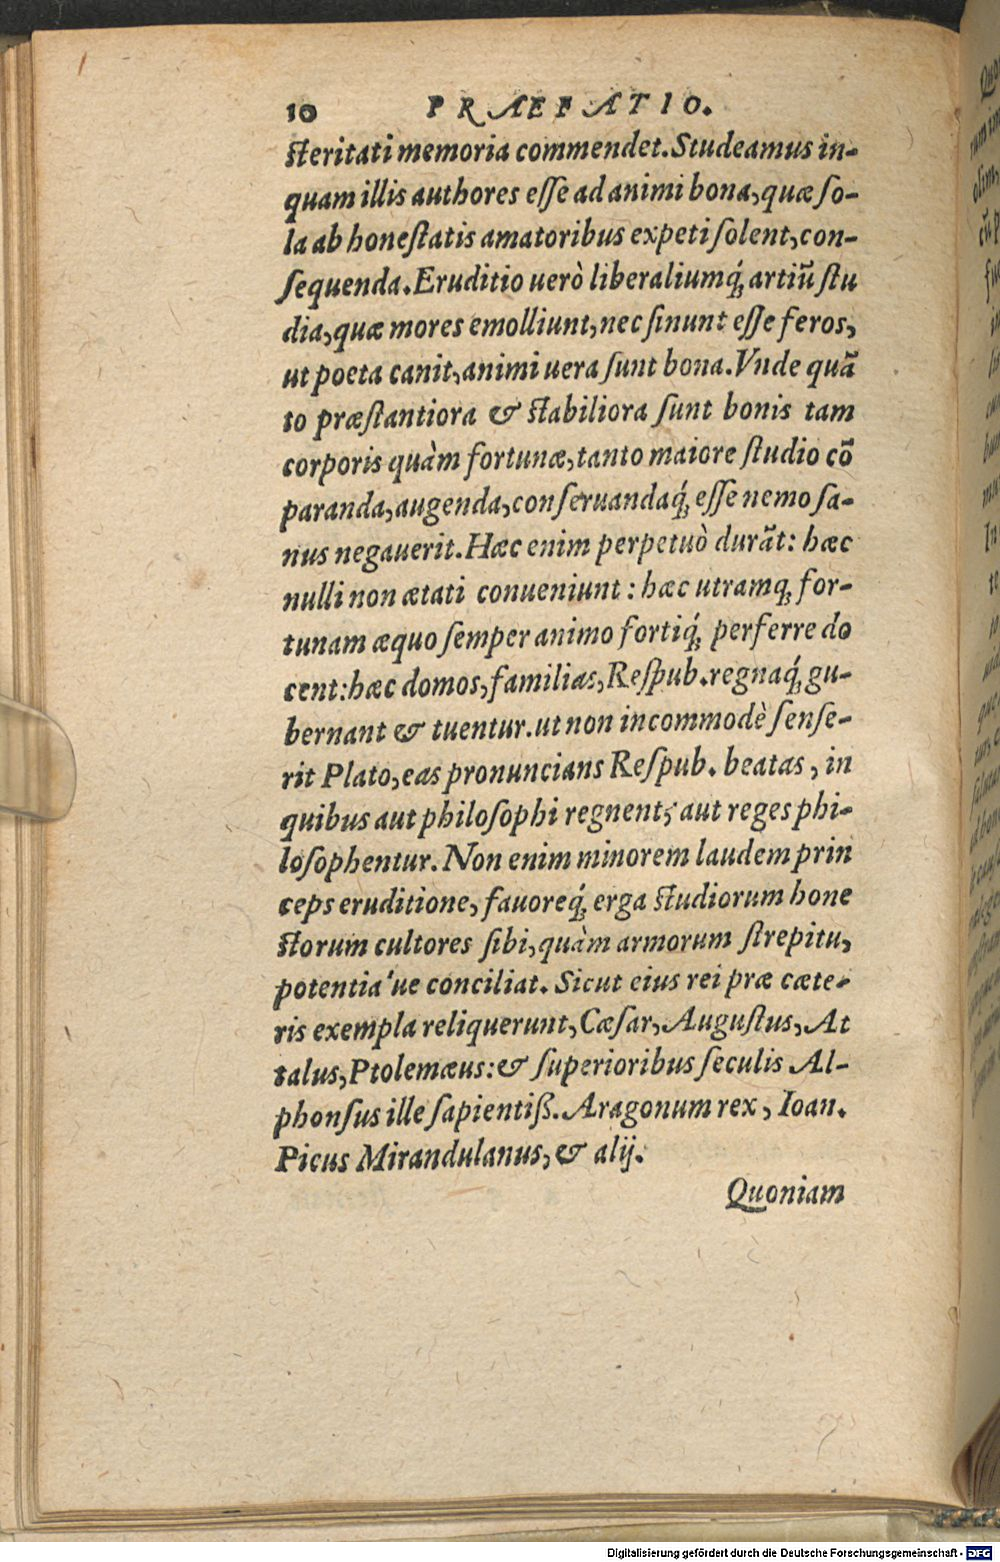 10 PRÆFATIO.
ſteritati memoria commendet. Studeamus in-
quam illis authores eſſe ad animi bona, quæ ſo-
la ab honeſtatis amatoribus expeti ſolent, con-
ſequenda. Eruditio uerò liberaliumq́; artiũ ſtu
dia, quæ mores emolliunt, nec ſinunt eſſe feros,
ut poeta canit, animi uera ſunt bona. Vnde quã
to præſtantiora & ſtabiliora ſunt bonis tam
corporis quàm fortunæ, tanto maiore ſtudio cõ
paranda, augenda, conſeruandaq́; eſſe nemo ſa-
nus negauerit. Hæc enim perpetuò durãt: hæc
nulli non ætati conueniunt: hæc utramq; for-
tunam æquo ſemper animo fortiq́; perferre do
cent: hæc domos, familias, Reſpub. regnaq́; gu-
bernant & tuentur. ut non incommodè ſenſe-
rit Plato, eas pronuncians Reſpub. beatas, in
quibus aut philoſophi regnent, aut reges phi-
loſophentur. Non enim minorem laudem prin
ceps eruditione, fauoreq́; erga ſtudiorum hone
ſtorum cultores ſibi, quàm armorum ſtrepitu,
potentia'ue conciliat. Sicut eius rei præ cæte-
ris exempla reliquerunt, Cæſar, Auguſtus, At
talus, Ptolemæus: & ſuperioribus ſeculis Al-
phonſus ille ſapientiß. Aragonum rex, Ioan.
Picus Mirandulanus, & alij.
Quoniam
Digitalisierung gefördert durch die Deutsche Forschungsgemeinschaft - DFG